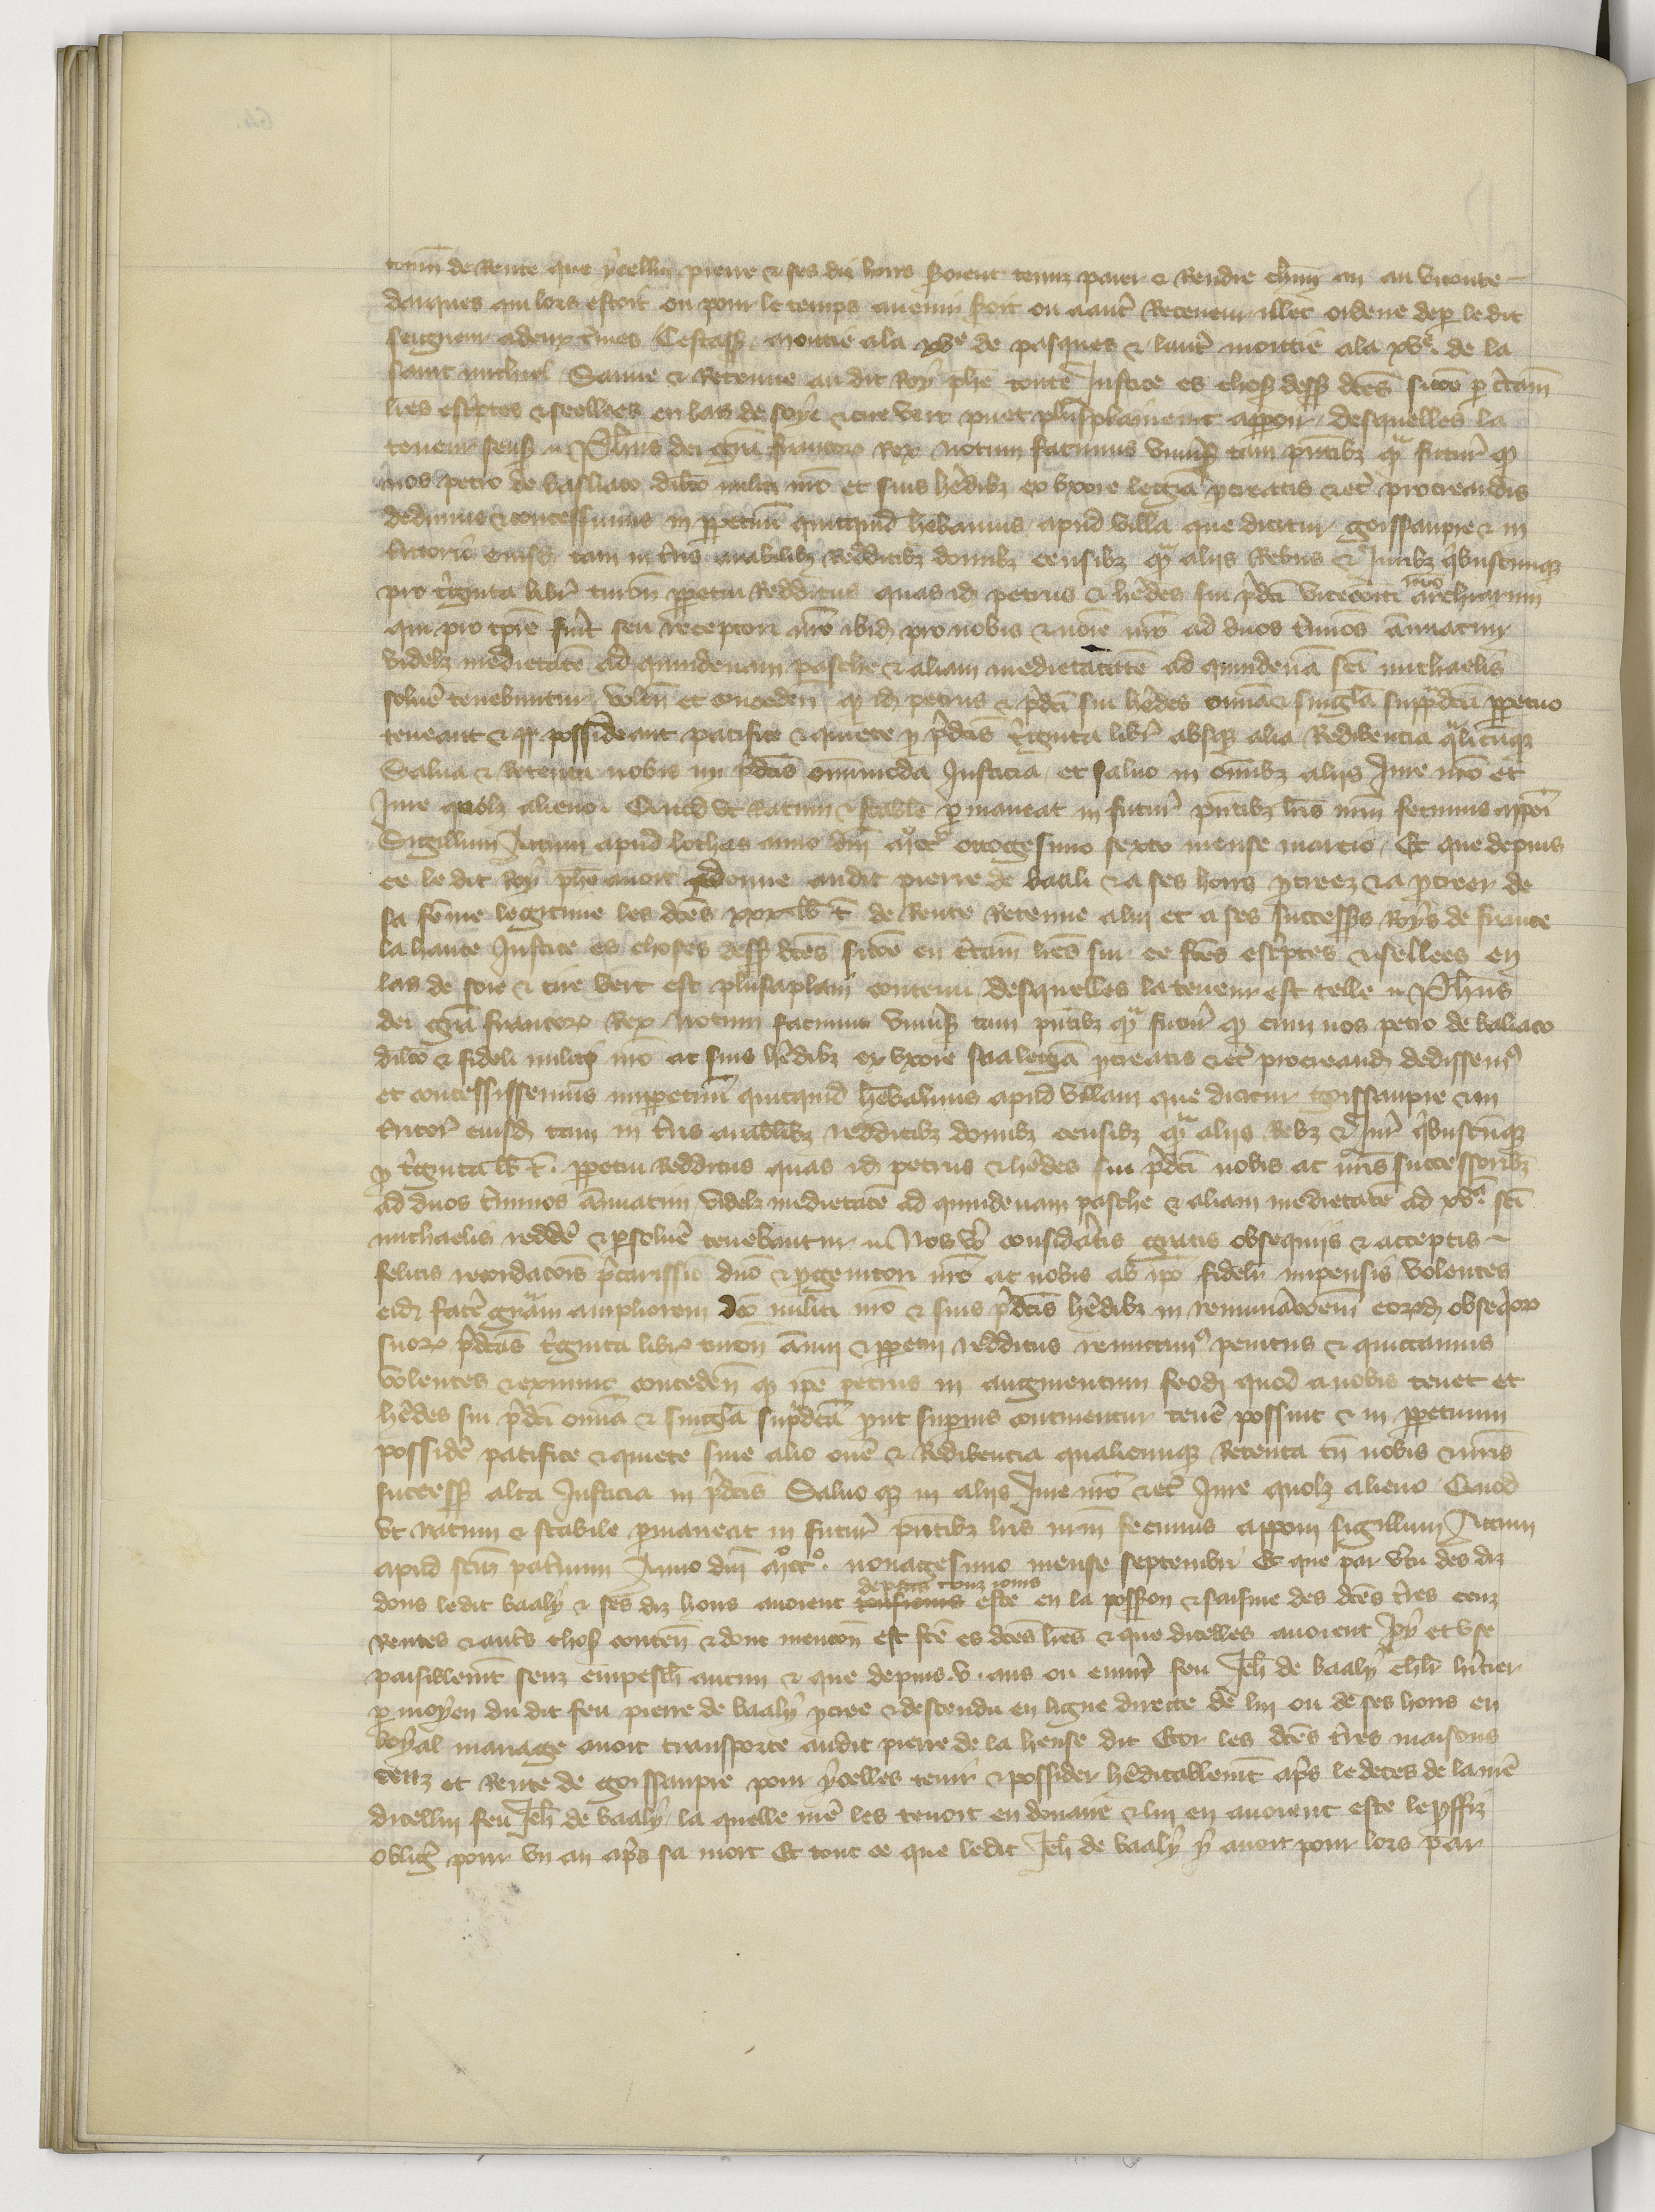 tourn de Rente que ycellui pierre & ses diz hoirs seroient tenuz paier & Rendre chũn an au viconte
darques qui lors estoit ou pour le temps auenir seroit ou a autre Receueur illec ordene de p le dit
seigneur a deux tmes Cestass moitie a la xve de pasques & lautre moitie a la xve de la
saint michiel Sauue & Retenue au dit Roy phe toute Justice es choses dess dces sicõ p ctain
lres escptes & seellees en las de soye & cire vert puet plus plainement apparoir desquelles la
teneur sensuit Phus dei gra francor Rex Notum facimus vniuss tam pntibz q futur q
nos petro de bailliaco dilco militi nro et suis hedibz ex vxore legia pcreatis & ec procreandis
dedimus & concessimus in ppetuu quicquid habebamus apud villa que dicitur goissaupre & in
tritorio eiusd tam in tris arabilibz Redditibz domibz censibz q aliis Rebus & Juribz qbuscunque
pro triginta libr turon ppetui Redditus quas id petrus & hedes sui pdci vicecomiti nro archiarum
qui pro tpre fuit seu receptori nro ibid pro nobis & noie nro ad duos tminos annuatim
videlz medietate ad quindenam pasche & aliam medietatate ad quindena sci michaelis
solue tenebuntur volen et conceden q id petrus & pdci sui hedes omnia & singla suppdca ppetuo
teneant & possideant pacifice & quiete p pdcis triginta libr absque alia Redibencia qlicuque
Salua & Retenta nobis in pdcis omnimoda Justicia et saluo in omibz aliis Jure nro et
Jure quolz alieno Quod vt Ratum & stabile pmaneat in futur pntibz lris nrm fecimus appoi
Sigillum Actum apud lochas anno dni mo cco octogesimo sexto mense marcio Et que depuis
ce le dit Roy phe auoit donne audit pierre de baali & a ses hoirs pcreez & a pcreer de
sa feme legitime les dces xxx lb t de Rente Retenue a lui et a ses successs Roys de france
la haute Justice es choses dess dces sicõe en ctain lres sur ce fces escptes & seellees en
las de soie & cire vert est plus a plain contenu desquelles la teneur est telle Phus
dei gra francor Rex Notum facimus vniuss tam pntibz q futur q cum nos petro de baliaco
dilco & fideli militi nro ac suis hedibz ex vxore sua legia pcreatis & ec procreand dedissem
et concessissemus in ppetuu quicquid hebamus apud villam que dicitur goissaupre & in
tritor eiusd tam in tris arabilibz redditibz domibz censibz q aliis Rebz & Jur qbuscuque
p triginta lb t ppetui Redditus quas id petrus & hedes sui pdci nobis ac nris successoribz
ad duos tminos annuatim videlz medietate ad quindenam pasche & aliam medietate ad xva sci
michaelis redde & psolue tenebantur Nos vo considatis gratis obsequiis & acceptis
felicis recordacois pcarissio dno & pgenitori nro ac nobis ab ipo fidelr impensis volentes
eid face gram ampliorem dco militi nro & suis pdcis hedibz in remunacoem eord obseqor
suor pdcas triginta libr turon annui & ppetui redditus remittim penitus & quittamus
volentes & exnunc conceden q ipe petrus in augmentum feodi quod a nobis tenet et
hedes sui pdci omia & singla supdca put superius continentur tene possint & in ppetuum
posside pacifice & quiete sine alio one & Redibencia qualicunque Retenta tn nobis & nris
success alta Justicia in pdcis Saluo que in aliis Jure nro & ec Jure quolz alieno Quod
vt ratum & stabile pmaneat in futur pntibz lris nrm fecimus apponi sigillum Actum
apud scm patnum Anno dni mo cco nonagesimo mense septembr Et que par vtu des diz
dons ledit baaly & ses diz hoirs auoient depuis touz iours este en la possion & saisine des dces tres cenz
Rentes & autres choses conten & dont mencon est fce es dces lres & que dicelles auoient joy et vse
paisiblemt senz empeschem aucun & que depuis v ans ou enuir feu Jeh de baaly chlr hitier
p moyen du dit feu pierre de baaly pcree & descendu en ligne directe de lui ou de ses hoirs en
loyal mariage auoit transporte audit pierre de la heuse dit Ector les dces tres maisons
cenz et Rente de goissaupre pour ycelles tenir & possider heditablemt aps le deces de la me
dicellui feu Jeh de baaly la quelle me les tenoit en douaire & lui en auoient este les pffiz
obligez pour vn an aps sa mort Et tout ce que ledit Jeh de baaly y auoit pour lors par